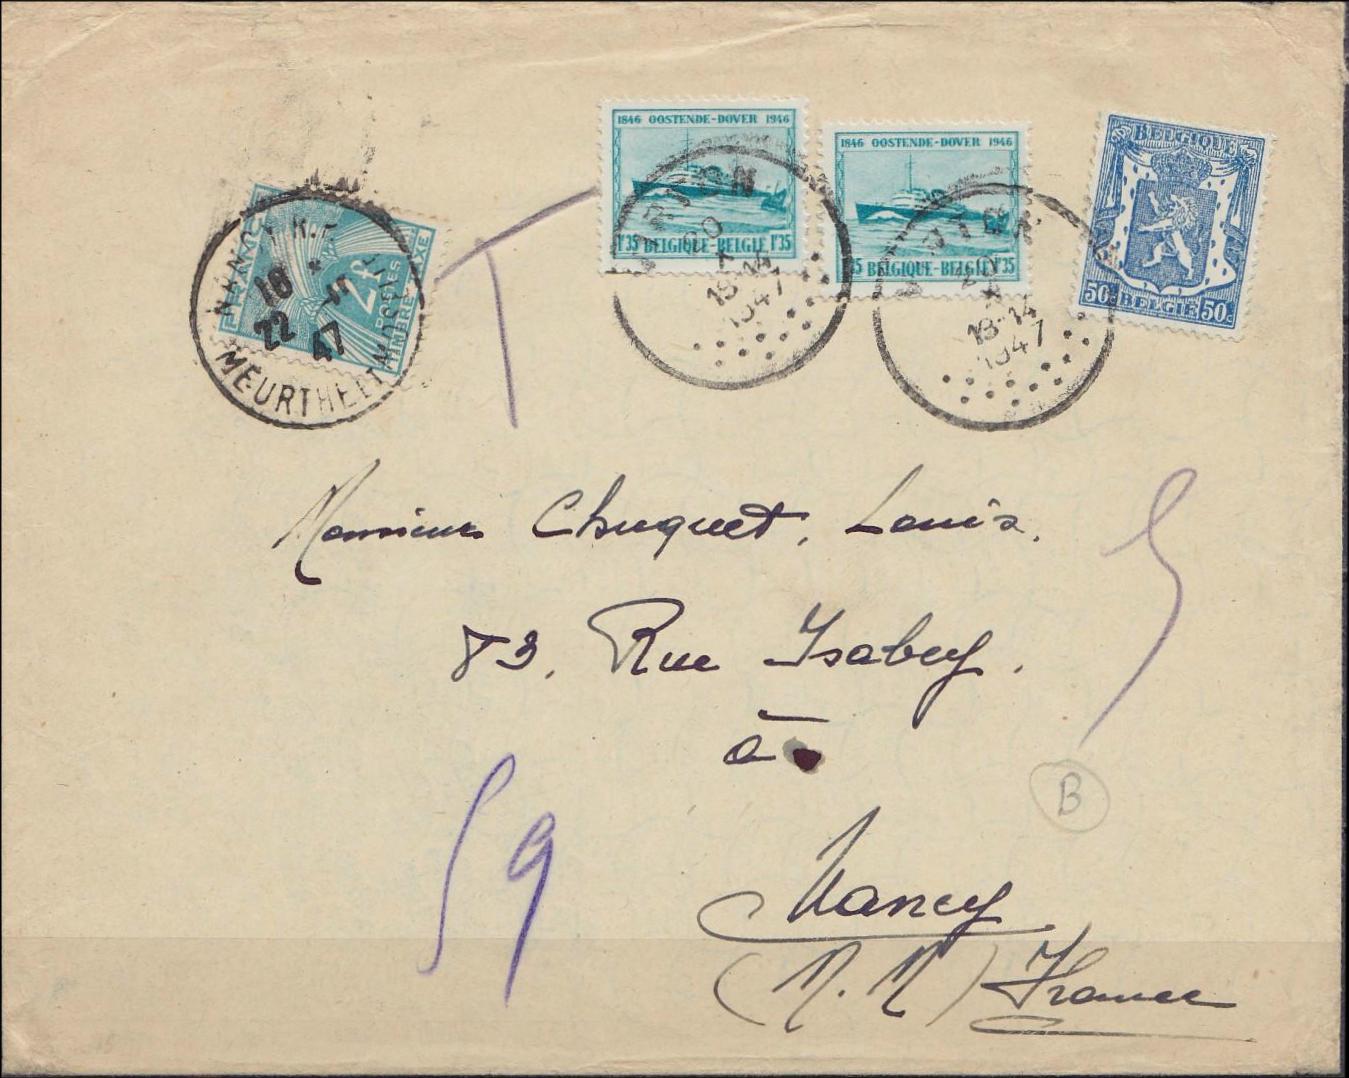 1846 OOSTENDE-DOVER 1946
1F35 BELGIQUE-BELGIE 1F35
1846 OOSTENDE-DOVER 1946
35 BELGIQUE-BELGIE 1F35
BELGIQUE
50c BELGIE 50c
20
X
13-14
1947
X
13-14
1947
FRANCE
2F
TIMBRE TAXE
NANCY R.P.
18
22 - 5
47
MEURTHE ET MOSELLE
T
Monsieur Chuquet, Louis.
83, Rue Isabey.
à
Nancy
(M. M) France
B
59